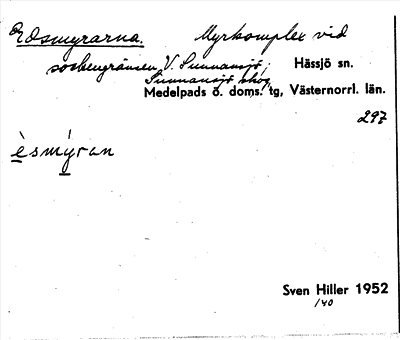 Edsmyrarna. Myrkomplex vid
sockengränsen, V. Sunnansjö, Hässjö sn.
Sunnansjö skog,
Medelpads ö. doms. tg, Västernorrl. län.
297
èsmýran
Sven Hiller 1952
140